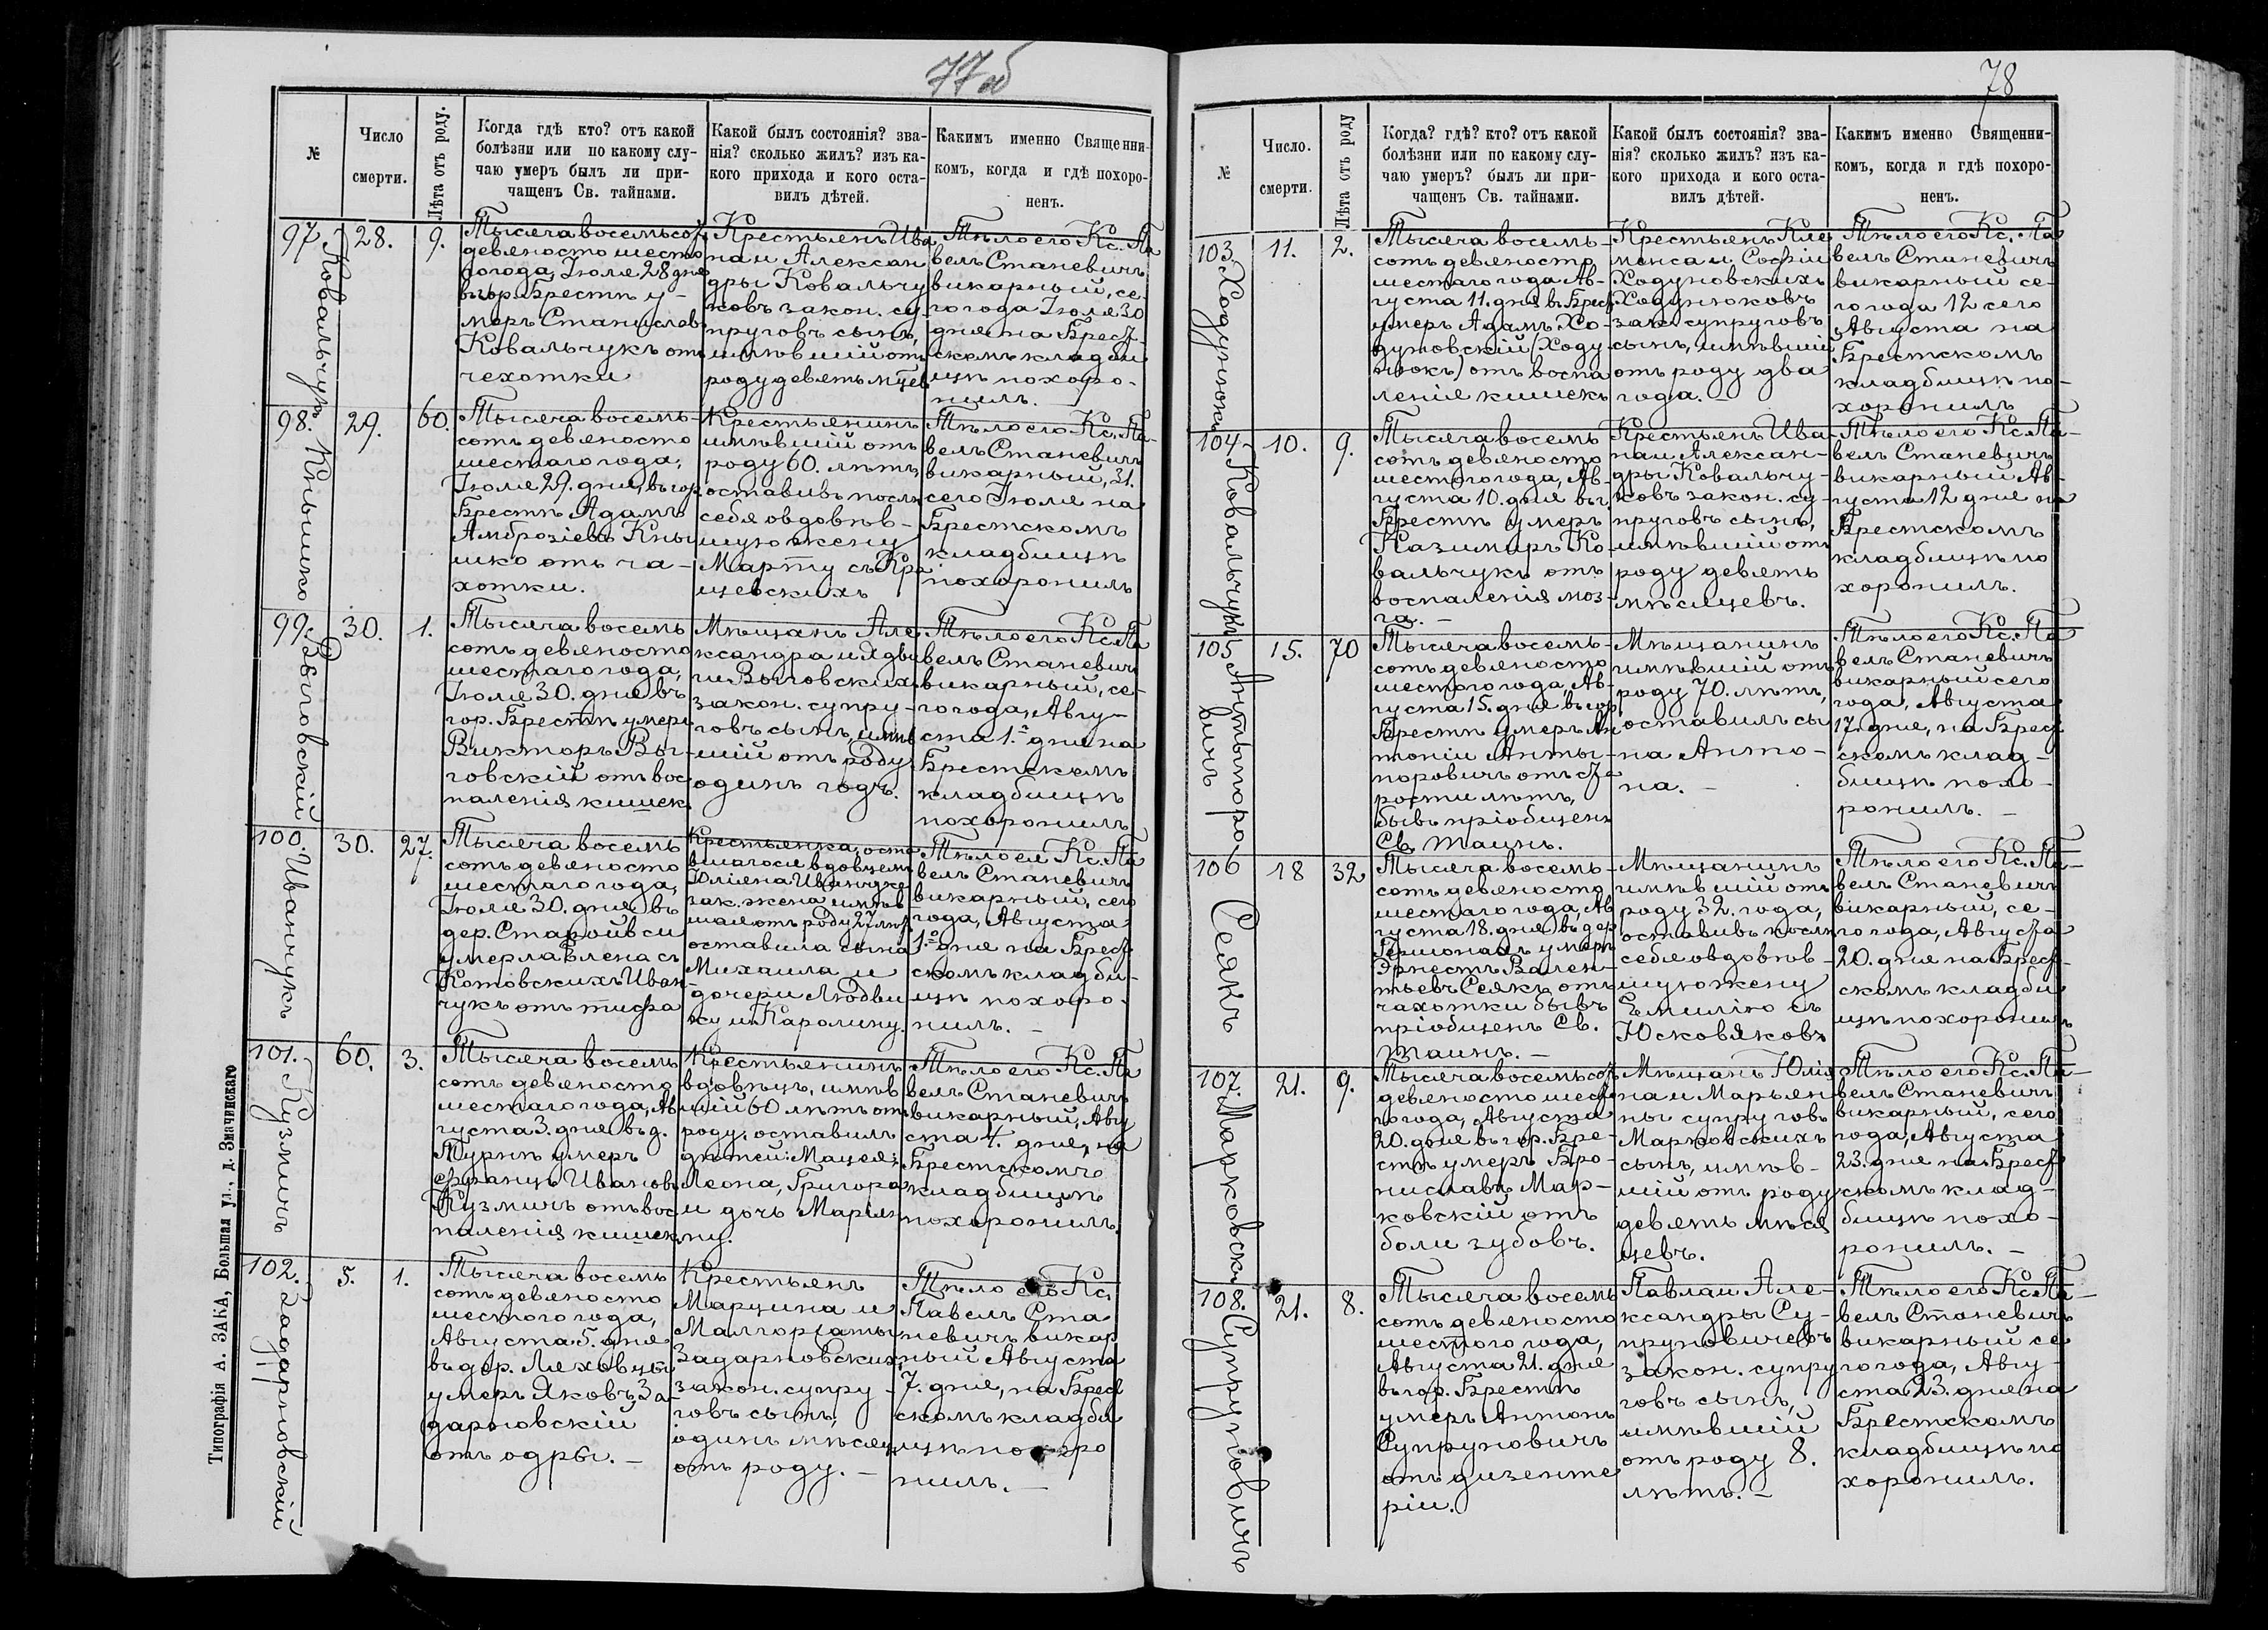 77 об
№
Число
смерти.
Лѣта отъ роду.
Когда гдѣ кто? отъ какой
болѣзни или по какому слу-
чаю умеръ былъ ли при-
чащенъ Св. тайнами.
Какой былъ состоянія? зва-
нія? сколько жилъ? изъ ка-
кого прихода и кого оста-
вилъ дѣтей.
Какимъ именно Священни-
комъ, когда и гдѣ похоро-
ненъ.
97
Ковальчукъ
28.
9.
Тысяча восемьсотъ
девяносто шесто
го года, Іюля 28 дня
въ гор. Брестѣ у-
меръ Станиславъ
Ковальчукъ отъ
чехотки
Крестьянъ Ива
на и Алексан
дры Ковальчу
ковъ закон. су-
пруговъ сынъ,
имѣвшій отъ
роду девять мцев
Тѣло его Кс. Па
велъ Станевичъ
викарный, се-
го года Іюля 30
дня на Брест-
скомъ кладби
щѣ похоро-
нилъ.
98.
Кнышко
29.
60.
Тысяча восемь-
сотъ девяносто
шестаго года,
Іюля 29. дня, въ гор.
Брестѣ Адамъ
Амброзіевъ Кны
шко отъ ча-
хотки.
Крестьянинъ
имѣвшій отъ
роду 60. лѣтъ,
оставивъ послѣ
себя овдовѣв-
шую жену
Марту съ Кра
щевскихъ
Тѣло его Кс. Па-
велъ Станевичъ
викарный, 31.
сего Іюля на
Брестскомъ
кладбищѣ
похоронилъ
99.
Выговскій
30.
1.
Тысяча восемь
сотъ девяносто
шестаго года,
Іюля 30. дня въ
гор. Брестѣ умеръ
Викторъ Вы-
говскій отъ вос
паленія кишек.
Мѣщанъ Але
ксандра и Ядви
ги Выговскихъ
закон. супру-
говъ сынъ, имѣв
шій отъ роду
одинъ годъ.
Тѣло его Кс. Па
велъ Станевичъ
викарный, се-
го года, Авгу-
ста 1. дня на
Брестскомъ
кладбищѣ
похоронилъ
100.
Иванчукъ
30.
27.
Тысяча восемь
сотъ девяносто
шестаго года,
Іюля 30. дня въ
дер. Старой вси
умерла Елена съ
Котовскихъ Иван-
чукъ отъ тифа
Крестьянка, оста
вшагося вдовцемъ
Юліяна Иванчука
зак. жена имѣв
шая отъ роду 27 лѣт
оставила сына
Михаила и
дочери Людви
ку и Каролину.
Тѣло ея Кс. Па
велъ Станевичъ
викарный, сего
года, Августа
1.го дня на Брест
скомъ кладби-
щѣ похоро-
нилъ. -
101.
Кузмичъ
60.
3.
Тысяча восемь
сотъ девяносто
шестаго года, Ав
густа 3. дня въ д.
Турнѣ умеръ
Францъ Ивановъ
Кузмичъ отъ вос
паленія кишек.
Крестьянинъ
вдовецъ, имѣв
шій 60 лѣтъ отъ
роду, оставилъ
дѣтей: Мацея,
Леона, Григора
и дочь Марьян
ну.
Тѣло его Кс. Па
велъ Станевичъ
викарный, Авгу
ста 4. дня, на
Брестскомъ
кладбищѣ
похоронилъ.
102.
Задарновскій
5.
1.
Тысяча восемь
сотъ девяносто
шестого года,
Августа 5. дня
въ дер. Ляховцы
умеръ Яковъ За
дарновскій
отъ одры. -
Крестьянъ
Марцина и
Малгоржаты
Задарновских
закон. супру-
говъ сынъ,
одинъ мѣсяц
отъ роду. -
Тѣло его Кс.
Павелъ Ста
невичъ викар
ный Августа
7. дня, на Брест
скомъ кладби
щѣ похоро
нилъ. -
Типографія А. ЗАКА, Большая ул., д. Значинскаго
78
№
Число.
смерти.
Лѣта отъ роду
Когда? гдѣ? кто? отъ какой
болѣзни или по какому слу-
чаю умеръ? былъ ли при-
чащенъ Св. тайнами.
Какой былъ состоянія? зва-
нія? сколько жилъ? изъ ка-
кого прихода и кого оста-
вилъ дѣтей.
Какимъ именно Священни-
комъ, когда и гдѣ похоро-
ненъ.
103
Ходунюкъ
11.
2.
Тысяча восемь-
сотъ девяносто
шестаго года Ав-
густа 11. дня въ Брест
умеръ Адамъ Хо-
дуновскій (Ходу
нюкъ) отъ воспа
ленія кишекъ
Крестьянъ Кле
менса и Софіи
Ходуновскихъ
Ходунюковъ
зак. супруговъ
сынъ, имѣвшій
отъ роду два
года. -
Тѣло его Кс. Па
велъ Станевичъ
викарный се-
го года 12 сего
Августа на
Брестскомъ
кладбищѣ по-
хоронилъ
104
Ковальчукъ
10.
9.
Тысяча восемь
сотъ девяносто
шестого года, Ав-
густа 10. дня въ г.
Брестѣ умеръ
Казимиръ Ко-
вальчукъ отъ
воспаленія моз-
га. -
Крестьянъ Ива-
на и Алексан-
дры Ковальчу-
ковъ закон. су-
пруговъ сынъ,
имѣвшій отъ
роду девять
мѣсяцевъ.
Тѣло его Кс. Па-
велъ Станевичъ
викарный Ав-
густа 12 дня на
Брестскомъ
кладбищѣ по
хоронилъ.
105
Антыпоро
вичъ
15.
70
Тысяча восемь-
сотъ девяносто
шестого года, Ав-
густа 15. дня въ гор
Брестѣ умеръ Ан
тоній Анты-
поровичъ отъ ста
рости лѣтъ,
бывъ пріобщенъ
Св. Таинъ.
Мѣщанинъ
имѣвшій отъ
роду 70. лѣтъ,
оставилъ сы
на Анто-
на. -
Тѣло его Кс. Па
велъ Станевичъ
викарный сего
года, Августа
17. дня, на Брест
скомъ клад-
бищѣ похо-
ронилъ. -
106
Сеякъ
18
32
Тысяча восемь-
сотъ девяносто
шестаго года, Ав
густа 18. дня въ дер
Гершонахъ умеръ
Эрнестъ Вален-
тьевъ Сеякъ отъ
чахотки бывъ
пріобщенъ Св.
Таинъ. -
Мѣщанинъ
имѣвшій отъ
роду 32. года,
оставивъ послѣ
себя овдовѣв-
шую жену
Емилію съ
Юсковяковъ
Тѣло его Кс. Па-
велъ Станевичъ
викарный, се-
го года, Августа
20. дня на Брест-
скомъ кладби
щѣ похоронилъ
107.
Марковскі
21.
9.
Тысяча восемьсотъ
девяносто шест
го года, Августа
20. дня въ гор. Бре-
стѣ умеръ Бро-
ниславъ Мар-
ковскій отъ
боли зубовъ.
Мѣщанъ Юлія
на и Марьян
ны супруговъ
Марковскихъ
сынъ, имѣв-
шій отъ роду
девять мѣся
цевъ.
Тѣло его Кс. Па-
велъ Станевичъ
викарный, сего
года, Августа
23. дня на Брест
скомъ клад-
бищѣ похо-
ронилъ. -
108.
Супруновичъ
21.
8.
Тысяча восемь
сотъ девяносто
шестого года,
Августа 21. дня
въ гор. Брестѣ
умеръ Антонъ
Супруновичъ
отъ дизенте
ріи.
Павла и Але-
ксандры Су-
пруновичевъ
закон. супру
говъ сынъ,
имѣвшій
отъ роду 8.
лѣтъ. -
Тѣло его Кс. Па-
велъ Станевичъ
викарный се
го года, Авгу-
ста 23. дня на
Брестскомъ
кладбищѣ по
хоронилъ.